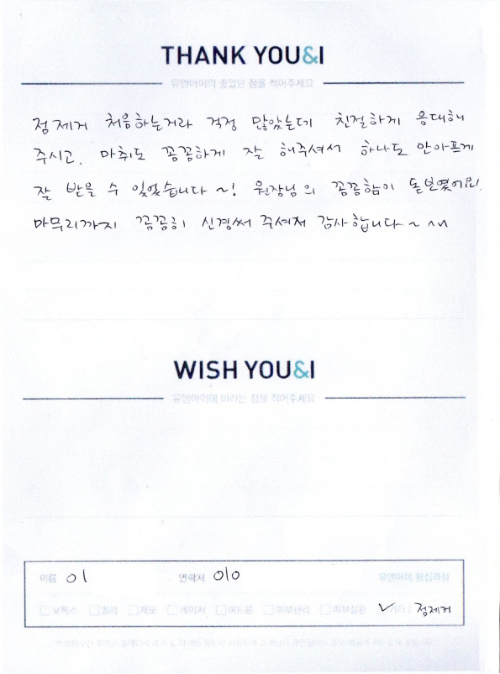 THANK YOU&I
유앤아이의 좋았던 점을 적어주세요
점 제거 처음하는거라 걱정 많았는데 친절하게 응대해
주시고, 마취도 꼼꼼하게 잘 해주셔서 하나도 안아프게
잘 받을 수 있었습니다 ~! 원장님의 꼼꼼함이 돋보였어요!
마무리까지 꼼꼼히 신경써 주셔서 감사합니다 ~ ^^
WISH YOU&I
유앤아이에 바라는 점을 적어주세요
이름 이 연락처 010
보톡스 필러 제모 레이저 여드름 피부관리 점제거